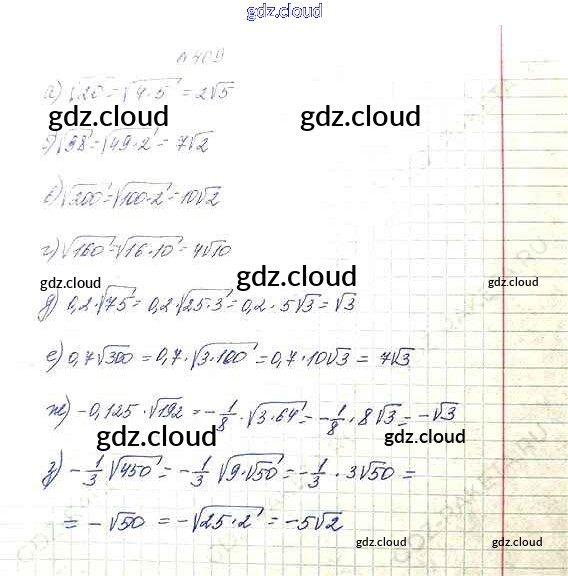 gdz.cloud
N 409
а) √20 = √4·5 = 2√5
gdz.cloud gdz.cloud
б) √98 = √49·2 = 7√2
в) √200 = √100·2 = 10√2
г) √160 = √16·10 = 4√10
gdz.cloud gdz.cloud gdz.cloud
д) 0,2·√75 = 0,2·√25·3 = 0,2·5√3 = √3
gdz.cloud gdz.cloud
е) 0,7√300 = 0,7·√3·100 = 0,7·10√3 = 7√3
ж) -0,125·√192 = -1/8·√3·64 = -1/8·8√3 = -√3
gdz.cloud gdz.cloud
з) -1/3 √450 = -1/3 √9·√50 = -1/3·3√50 =
= -√50 = -√25·2 = -5√2
gdz.cloud gdz.cloud gdz.cloud